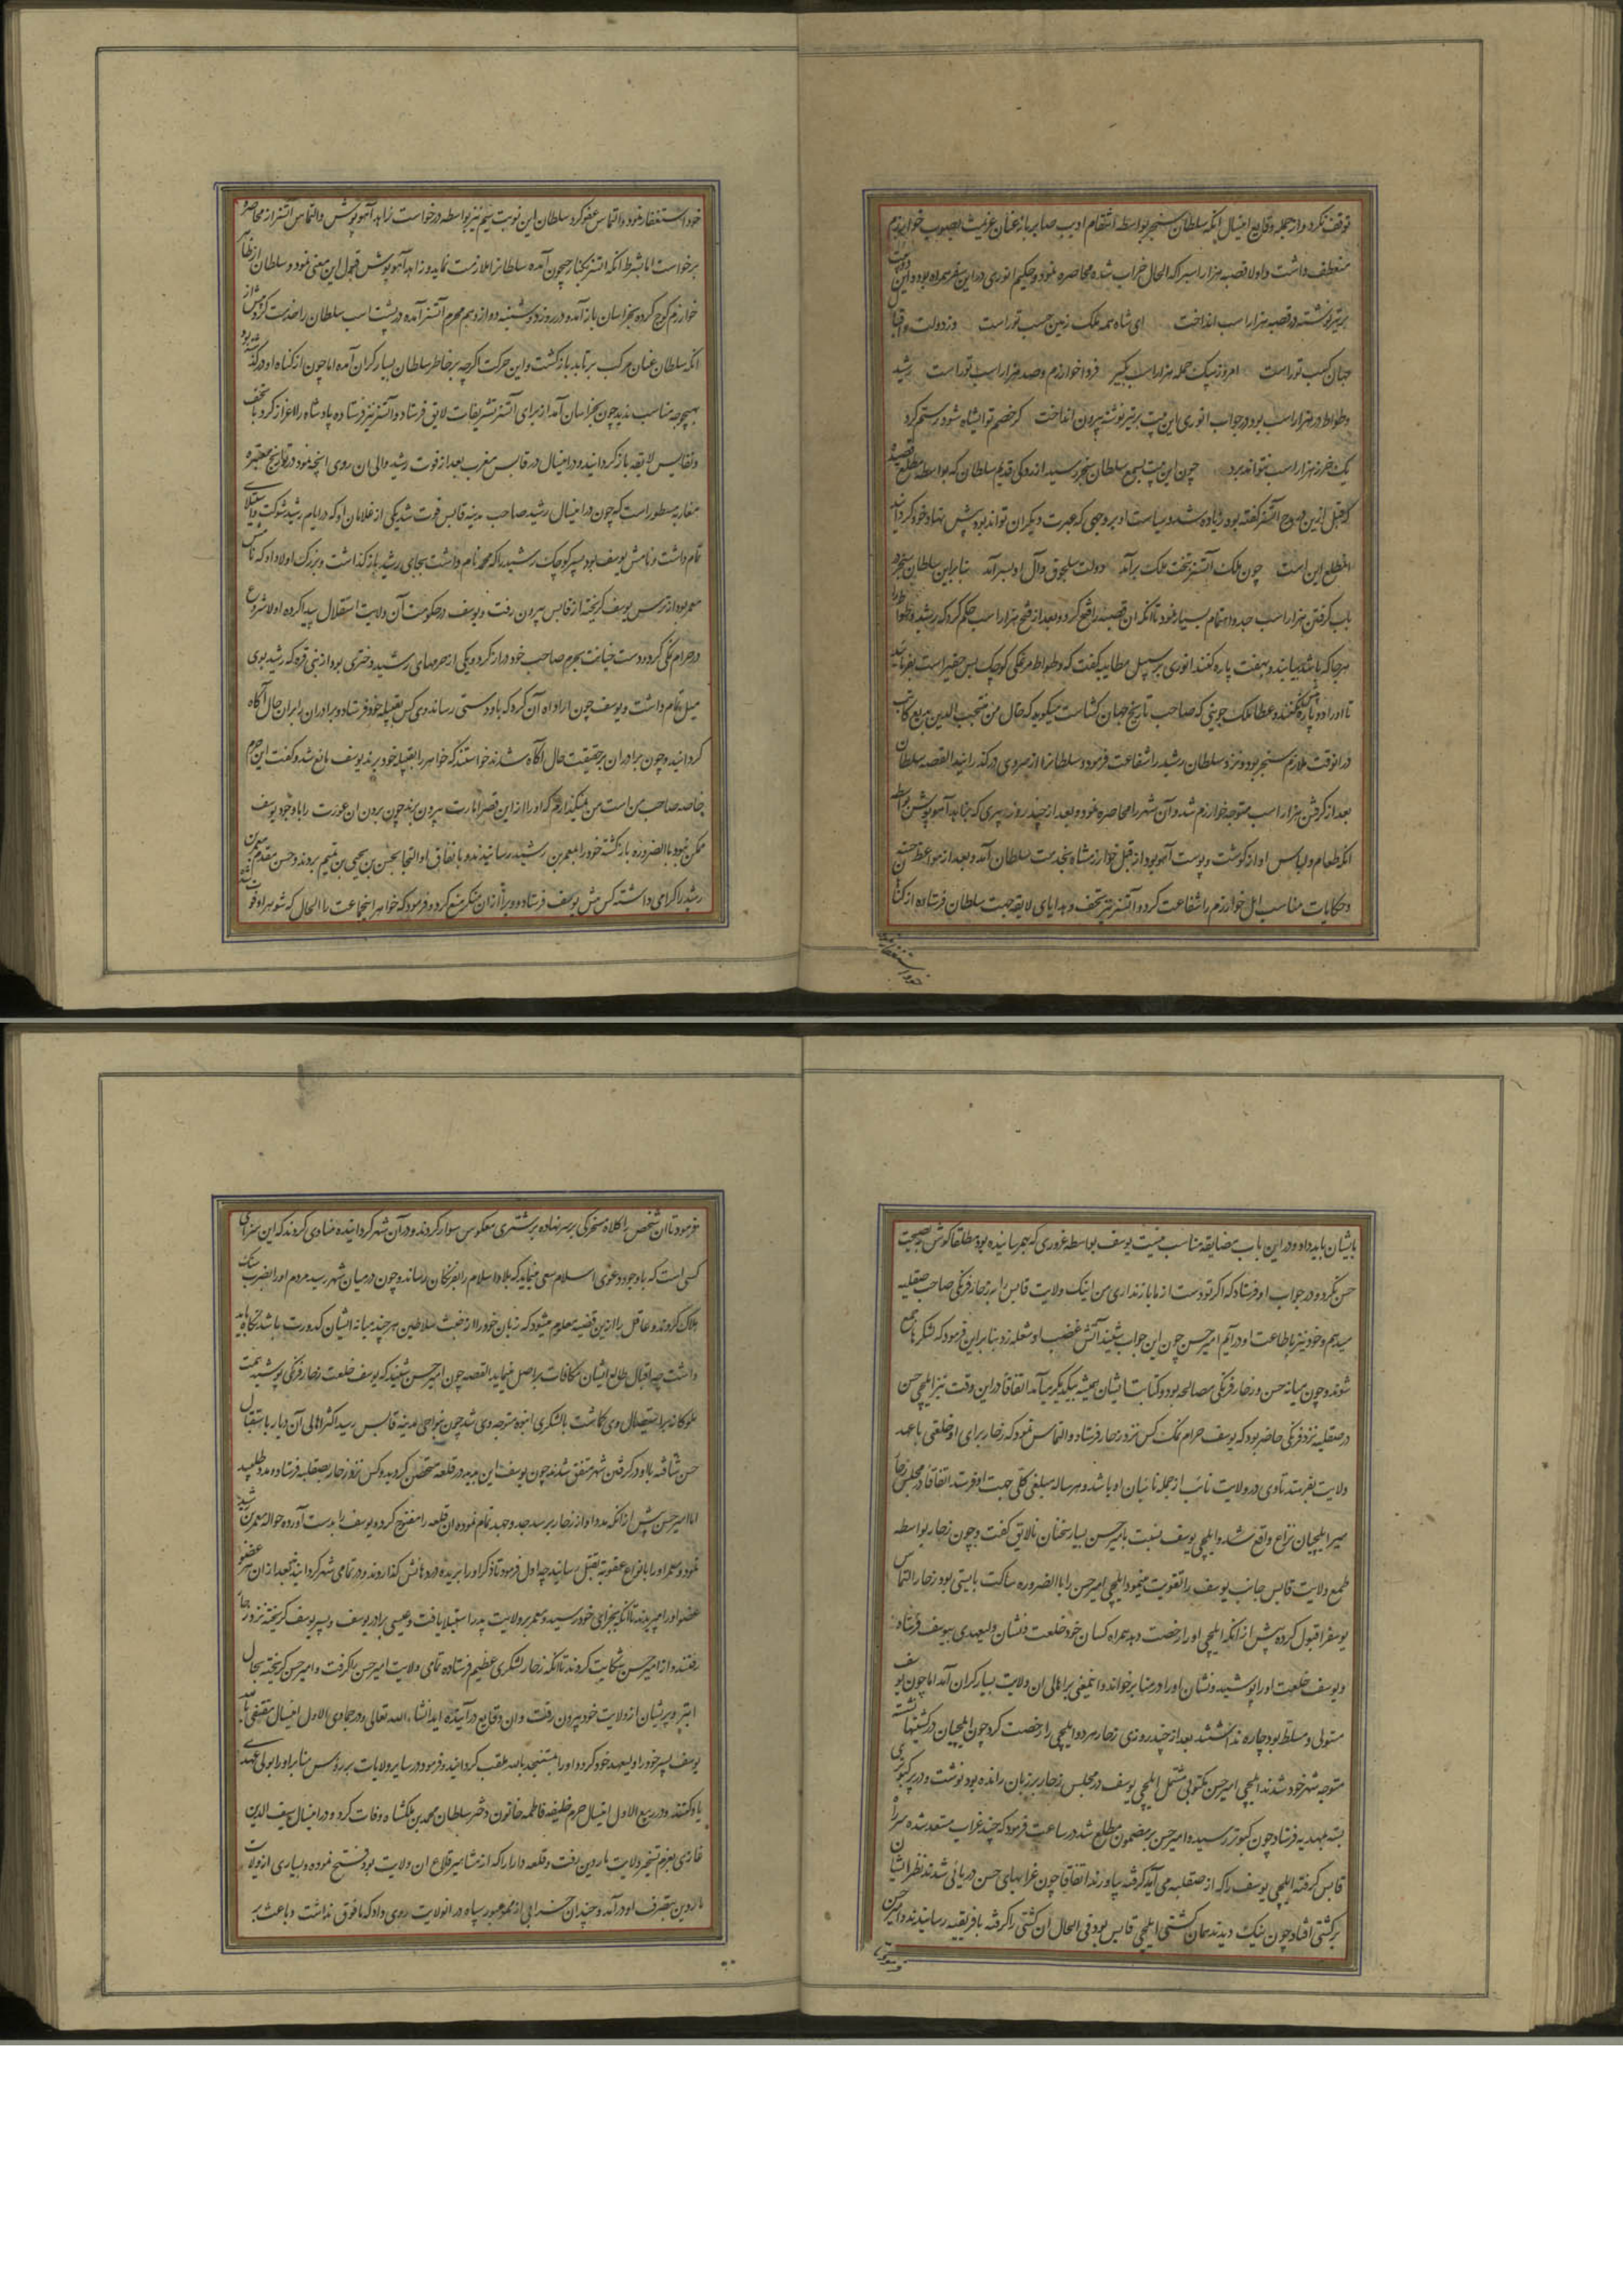 توقف نکرد و از جمله وقایع امسال انکه سلطان سنجر بواسطه انتقام ادیب صابر باز عنان عزیمت بصوب خوارزم
منعطف داشت و اولا قصبه هزاراسپ را که الحال خراب شده محاصره نمود و حکیم انوری در این سفر همراه بود و این دو بیت
بر تیر نوشته در قصبه هزاراسب انداخت ای شاه همه ملک زمین حسب تو راست وز دولت و اقبال
جهان کسب تو راست امروز بیک حمله هزاراسب بگیر فردا خوارزم و صد هزاراسب تو راست رشید
وطواط در هزاراسب بود در جواب انوری این بیت بر تیر نوشته بیرون انداخت کر خصم تو ایشاه شود رستم کرد
یک خر ز هزاراسب نتواند برد چون این بیت بسمع سلطان سنجر رسید از دو کی قدیم سلطان که بواسطه مطلع قصیده
که قبل ازین در مدح آتسز گفته بود زیاده شد و سیاست او بر وجهی که عبرت دیگران تواند بود پیش نهاد خود گردانید
مطلع این است چون ملک آتسز بتخت ملک برآمد دولت سلجوق و آل او بسر آمد بنابراین سلطان سنجر در
باب گرفتن هزاراسب جد و اهتمام بسیار نمود تا انکه ان قصبه را فتح کرد و بعد از فتح هزاراسب حکم کرد که رشید وطواط را
هرجا که باشد بیابند و بهفت پاره کنند انوری بر سبیل مطایبه گفت که وطواط مرغکی کوچک بس حقیر است بفرمائید
تا او را دو پاره کنند و عطا ملک جوینی که صاحب تاریخ جهان کشاست میگوید که خال من منتجب الدین بدیع کاتب
در انوقت ملازم سنجر بود و نزد سلطان رشید را شفاعت فرمود و سلطان از سر وی در گذرانید القصه سلطان
بعد از گرفتن هزاراسب متوجه خوارزم شد و آن شهر را محاصره نمود و بعد از چند روز پیری که بزاهد آهوپوش بواسطه
انکه طعام و لباس او از گوشت و پوست آهو بود از قبل خوارزمشاه بخدمت سلطان آمد و بعد از مواعظ حسنه
و حکایات مناسب اهل خوارزم را شفاعت کرد و آتسز نیز تحف و هدایای لایقه جهت سلطان فرستاده از گناه
خود استغفار نمود و التماس عفو کرد سلطان این نوبت سیم نیز بواسطه درخواست زاهد آهوپوش و التماس آتسز از محاصره
برخواست اما بشرط انکه اتسز بکنار جیحون آمده سلطان را ملازمت نماید و زاهد آهوپوش قبول این معنی نمود و سلطان از ظاهر
خوارزم کوچ کرده بخراسان باز آمد و در روز دوشنبه دوازدهم محرم آتسز آمده در پشت اسب سلطان را خدمت کرد و پیش از
انکه سلطان عنان مرکب برتابد بازگشت و این حرکت اگرچه بر خاطر سلطان بسیار گران آمد اما چون از گناه او در گذشته بود
بهیچوجه مناسب ندید چون بخراسان آمد از برای آتسز تشریفات لایق فرستاد و آتسز نیز فرستاده پادشاه را اعزاز کرد با تحف
و نفایس لایقه باز گردانید و در امسال در قابس مغرب بعد از فوت رشید والی ان روی انچه نمود در تواریخ معتبره
مغاربه مسطور است که چون در امسال رشید صاحب مدینه قابس فوت شد یکی از غلامان او که در ایام رشید شوکت و استیلای
تمام داشت و نامش یوسف بود پسر کوچک رشید را که محمد نام داشت بجای رشید بازگذاشت و بزرگ اولاد او که نامش
معمر بود از ترس یوسف گریخته از قابس بیرون رفت و یوسف در حکومت آن ولایت استقلال پیدا کرده اولا شروع
در حرام نمکی کرد و دست خیانت بحرم صاحب خود دراز کرد و یکی از حرمهای رشید دختری بود از بنی قره که رشید بوی
میل تمام داشت و یوسف چون اراده آن کرد که باو دستی رساند وی کس بقبیله خود فرستاد و برادران را بر ان حال آگاه
گردانید و چون برادران بر حقیقت حال آگاه شدند خواستند که خواهر را بقبیله خود برند یوسف مانع شد و گفت این حرم
خاصه صاحب من است من نمیگذارم که او را از این قصر امارت بیرون برند چون بردن ان عورت را با وجود یوسف
ممکن نبود بالضروره بازگشته خود را بمعمر بن رشید رسانیدند و باتفاق او التجا بحسن بن یحیی بن تمیم بردند و حسن مقدم معمر بن
رشید را گرامی داشته کس پیش یوسف فرستاد و ویرا از ان منکر منع کرد و فرمود که خواهر اینجماعت را الحال که شوهر او فوت شده
بایشان باید داد و در این باب مضایقه مناسب نیست یوسف بواسطه غروری که بهم رسانیده بود مطلقا گوش بنصیحت
حسن نکرد و در جواب او فرستاد که اگر تو دست از ما باز نداری من اینک ولایت قابس را به زجار فرنگی صاحب صقلیه
میدهم و خود نیز باطاعت او در آیم امیر حسن چون این جواب شنید آتش غضب او شعله زد بنابراین فرمود که لشکرها جمع
شوند و چون میانه حسن و زجار فرنگی مصالحه بود و کتابت ایشان همیشه بیکدیگر میآمد اتفاقا در این وقت نیز ایلچی حسن
در صقلیه نزد فرنگی حاضر بود که یوسف حرام نمک کس نزد زجار فرستاد و التماس نمود که زجار برای او خلعتی با عهد
ولایت بفرستد تا وی در ولایت نائب از جمله نائبان او باشد و هر ساله مبلغی کلی جهت او فرستد اتفاقا در مجلس زجار
میر ایلچیان نزاع واقع شد و ایلچی یوسف نسبت بامیر حسن بسیار سخنان نالایق گفت و چون زجار بواسطه
طمع ولایت قابس جانب یوسف را تقویت مینمود ایلچی امیر حسن را بالضروره ساکت بایستی بود زجار التماس
یوسف را قبول کرده پیش از انکه ایلچی او را رخصت دهد همراه کسان خود خلعت و نشان ولیعهدی بیوسف فرستاد
و یوسف خلعت او را پوشید و نشان او را در منابر خواند و اینمعنی بر اهالی ان ولایت بسیار گران آمد اما چون یوسف
مستولی و مسلط بود چاره نداشتند بعد از چند روزی زجار هر دو ایلچی را رخصت کرد چون ایلچیان در کشتیها نشسته
متوجه شهر خود شدند ایلچی امیر حسن مکتوبی مشتمل ایلچی یوسف در مجلس زجار بر زبان رانده بود نوشت و در پر کبوتری
بسته بمهدیه فرستاد چون کبوتر رسید و امیر حسن بر مضمون مطلع شد در ساعت فرمود که چند غراب مستعد شده سر راه
قابس گرفته ایلچی یوسف را که از صقلیه می آید گرفته بیاورند اتفاقا چون غرابهای حسن دریائی شدند نظر ایشان
بر کشتی افتاد چون نیک دیدند همان کشتی ایلچی قابس بود فی الحال ان کشتی را گرفته بافریقیه رسانیدند و امیر حسن
بفرمود تا ان شخص را کلاه مسخرگی بر سر نهاده بر شتری معکوس سوار کردند و در آن شهر گردانیده منادی کردند که این سزای
کسی است که با وجود دعوی اسلام سعی مینماید که بلاد اسلام را بفرنگان رساند و چون در میان شهر رسید مردم او را بضرب سنگ
هلاک کردند و عاقل را ازین قضیه معلوم میشود که زبان خود را از خبث سلاطین هر چند میانه ایشان کدورت باشد نگاه باید
داشت چه اقبال طالع ایشان مکافات بر اصل مینماید القصه چون امیر حسن شنید که یوسف خلعت زجار فرنگی پوشیده همت
ملوکانه بر استیصال وی گماشت با لشکری انبوه متوجه وی شد چون بنواحی مدینه قابس رسید اکثر اهالی آن دیار باستقبال
حسن شتافته با او در گرفتن شهر متفق شدند چون یوسف این بدید در قلعه متحصن گردید و کس نزد زجار بصقلیه فرستاد و مدد طلبید
اما امیر حسن پیش از انکه مدد او از زجار برسد جد و جهد تمام نموده ان قلعه را مفتوح کرد و یوسف را بدست آورده حواله معمر بن رشید
نمود و معمر او را بانواع عقوبت بقتل رسانید چه اول فرمود تا ذکر او را بریده در دهانش گذاردند و در تمامی شهر گردانید بعد از ان هر عضو
عضو او را میبریدند تا انکه بجزای خود رسید و معمر بر ولایت پدر استیلا یافت و عیسی برادر یوسف و پسر یوسف گریخته نزد زجار
رفتند و از امیر حسن شکایت کردند تا انکه زجار لشکری عظیم فرستاده تمامی ولایت امیر حسن را گرفت و امیر حسن گریخته بحال
ابتر و پریشان از ولایت خود بیرون رفت و ان وقایع در آینده آید انشاء الله تعالی و در جمادی الاول امسال مقتفی بالله
یوسف پسر خود را ولیعهد خود کرد و او را بمستنجد بالله ملقب گردانید و فرمود در سایر ولایات بر رؤس منابر او را بولی عهدی
یاد کنند و در ربیع الاول امسال حرم خلیفه فاطمه خاتون دختر سلطان محمد بن ملکشاه وفات کرد و در امسال سیف الدین
غازی بعزم تسخیر ولایت ماردین رفت و قلعه دارا را که از مشاهیر قلاع ان ولایت بود فتح نموده و بسیاری از ولایت
ماردین بتصرف او در آمد و چندان خرابی از ممر عبور سپاه در انولایت روی داد که مافوق نداشت و باعث بر